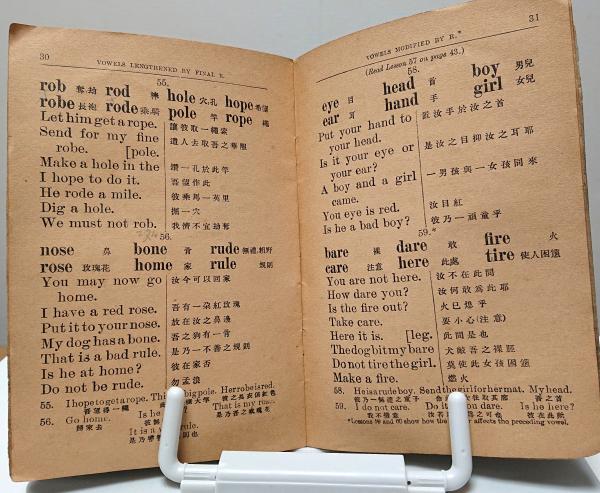 30
VOWELS LENGTHENED BY FINAL E.
55.
rob 奪劫 rod 棒 hole 穴,孔 hope 希望
robe 長袍 rode pole 竿 rope 繩
Let him get a rope. 讓彼取一繩索
Send for my fine 遣人去取吾之華服
robe. [pole.
Make a hole in the 鑽一孔於此竿
I hope to do it. 吾望作此
He rode a mile. 彼乘馬一英里
Dig a hole. 掘一穴
We must not rob. 我儕不宜劫奪
56.
nose 鼻 bone 骨 rude 無禮,粗野
rose 玫瑰花 home 家 rule 規則
You may now go 汝今可以回家
home.
I have a red rose. 吾有一朵紅玫瑰
Put it to your nose. 放在汝之鼻邊
My dog has a bone. 吾之狗有一骨
That is a bad rule. 是乃一不善之規則
Is he at home? 彼在家否
Do not be rude. 勿孟浪
55. I hope to get a rope. big pole. Her robe is red.
吾望得一繩 彼之長衣係紅色
56. Go home. Is he That is my
歸家去
It is a
31
VOWELS MODIFIED BY R.*
(Read Lesson 57 on page 43.)
58.
eye 目 head 首 boy 男兒
ear 耳 hand 手 girl 女兒
Put your hand to 置汝手於汝之首
your head.
Is it your eye or 是汝之目抑汝之耳耶
your ear?
A boy and a girl 一男孩與一女孩同來
came.
You eye is red. 汝目紅
Is he a bad boy? 彼乃一頑童乎
59.*
bare 裸 dare 敢 fire 火
care 注意 here 此處 tire 使人困憊
You are not here. 汝不在此間
How dare you? 汝何敢爲此耶
Is the fire out? 火已熄乎
Take care. 要小心(注意)
Here it is. [leg. 此間是也
The dog bit my bare 犬齧吾之裸脛
Do not tire the girl. 莫使此女孩困憊
Make a fire. 燃火
58. He is a rude boy. Send the girl for her mat. My head.
吾之首
59. I do not care. Do it you dare. Is he here?
我不懂意 彼在此歟
*Lessons 59 and 60 show how the affects the preceding vowel.